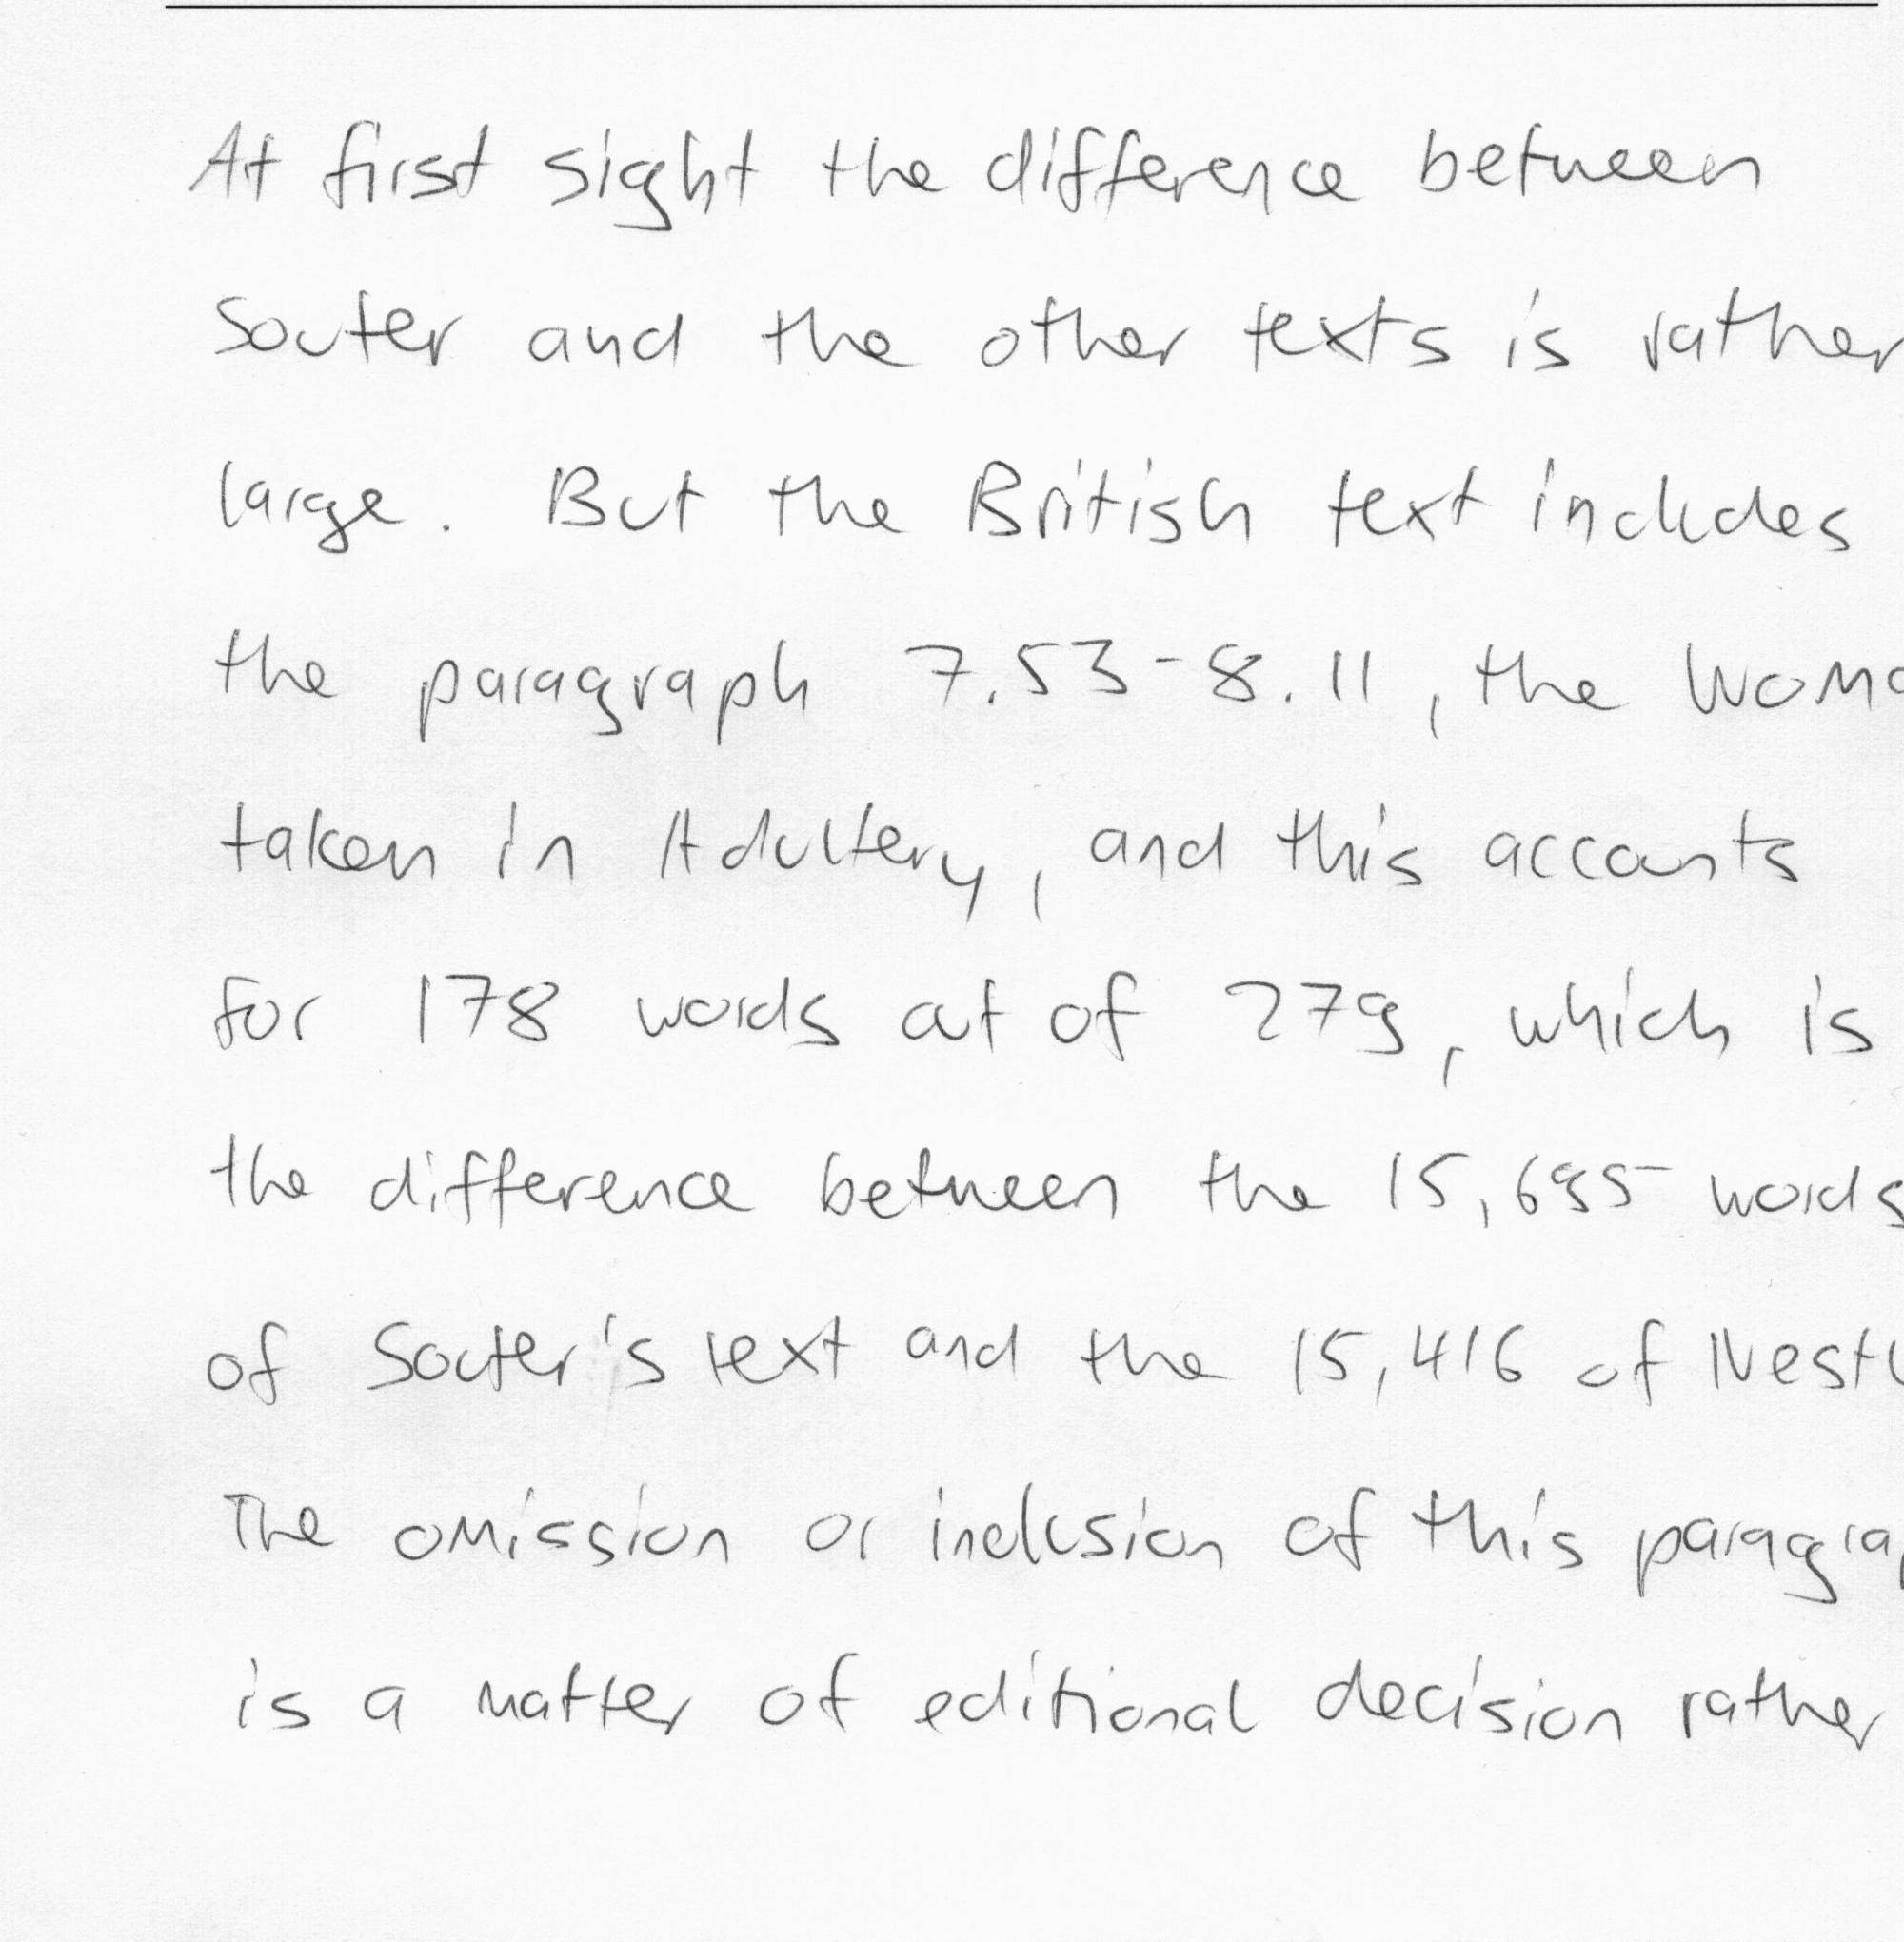 At first sight the difference between
Souter and the other texts is rather
large. But the British text includes
the paragraph 7.53-8.11, the Woma
taken in Adultery, and this accounts
for 178 words out of 279, which is
the difference between the 15,695 words
of Souter's text and the 15,416 of Nestl
The omission or inclusion of this paragrap
is a matter of editional decision rather